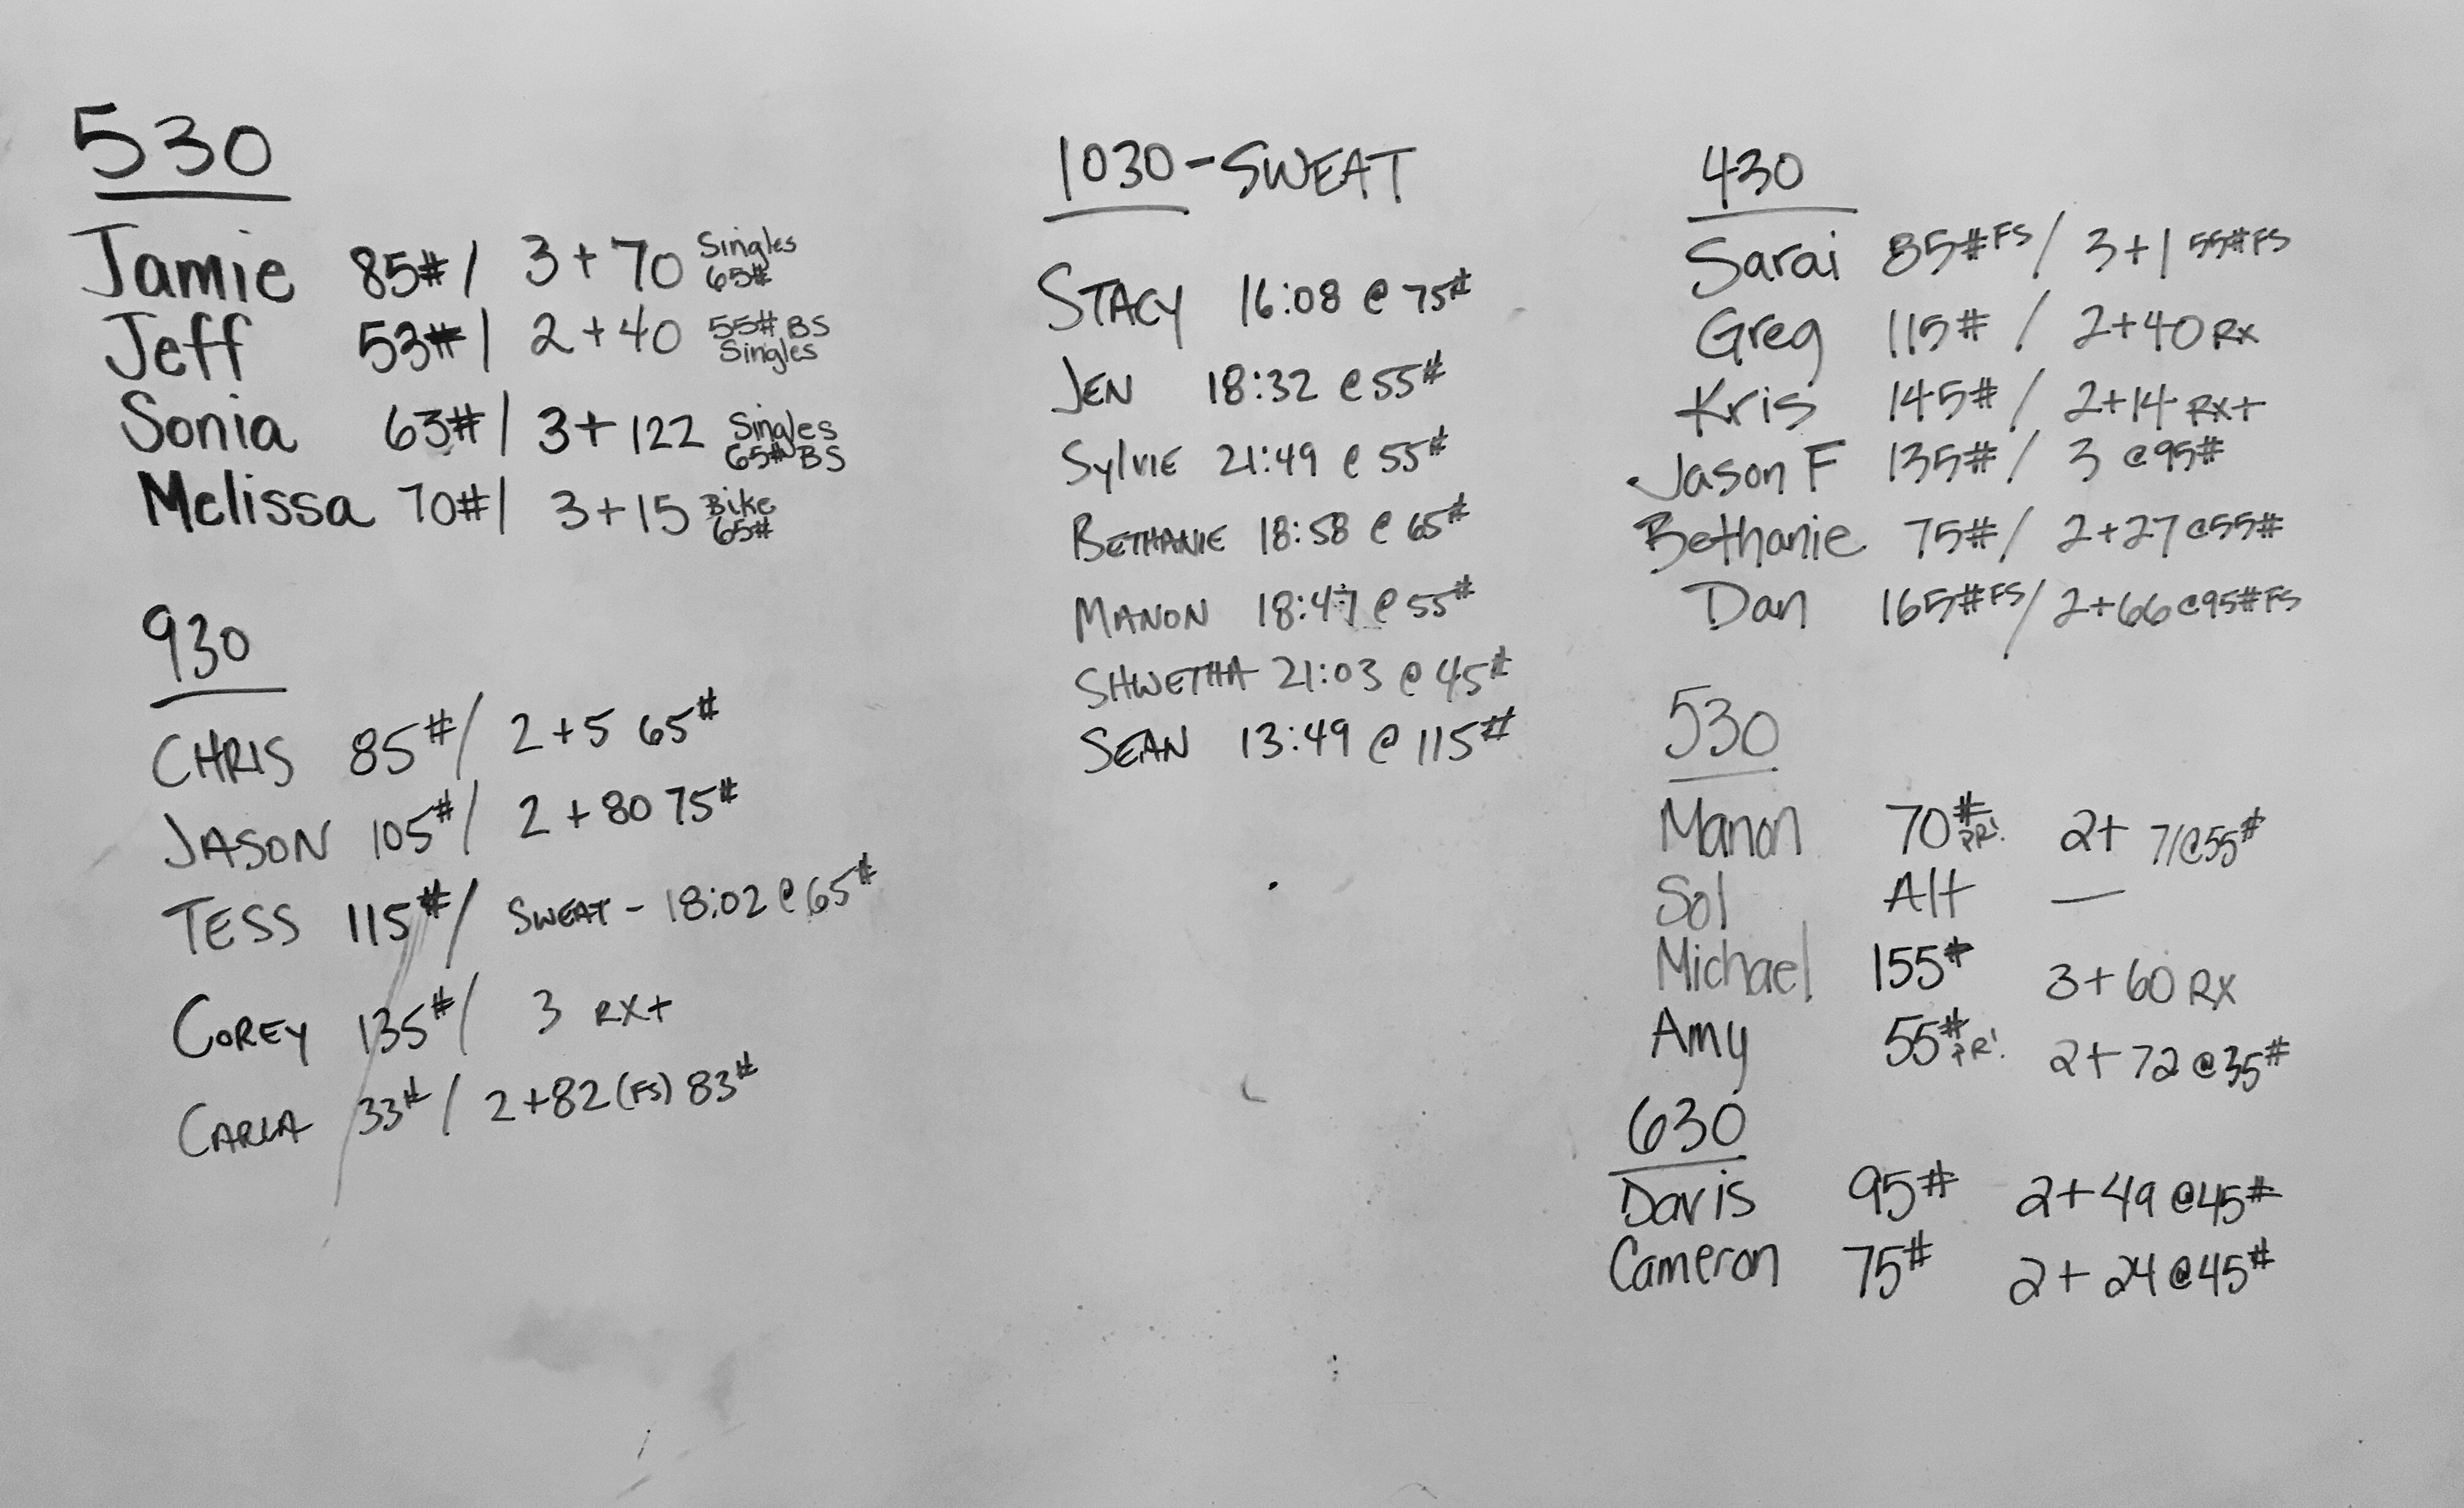 530
Jamie 85# / 3 + 70 Singles 65#
Jeff 53# / 2 + 40 55# BS Singles
Sonia 63# / 3 + 122 Singles 65# BS
Melissa 70# / 3 + 15 Bike 65#
930
CHRIS 85# / 2 + 5 65#
JASON 105# / 2 + 80 75#
TESS 115# / SWEAT - 18:02 @ 65#
COREY 135# / 3 RX+
CARLA 33# / 2+82 (FS) 83#
1030 - SWEAT
STACY 16:08 @ 75#
JEN 18:32 @ 55#
SYLVIE 21:49 @ 55#
BETHANIE 18:58 @ 65#
MANON 18:47 @ 55#
SHWETHA 21:03 @ 45#
SEAN 13:49 @ 115#
430
Sarai 85# FS / 3 + 1 55# FS
Greg 115# / 2+40 RX
Kris 145# / 2+14 RX+
Jason F 135# / 3 @95#
Bethanie 75# / 2+27 @55#
Dan 165# FS / 2+66 @95# FS
530
Manon 70# PR! 2+ 71@55#
Sol Alt —
Michael 155# 3+60 RX
Amy 55# PR! 2+ 72 @35#
630
Davis 95# 2+49 @45#
Cameron 75# 2+ 24 @45#